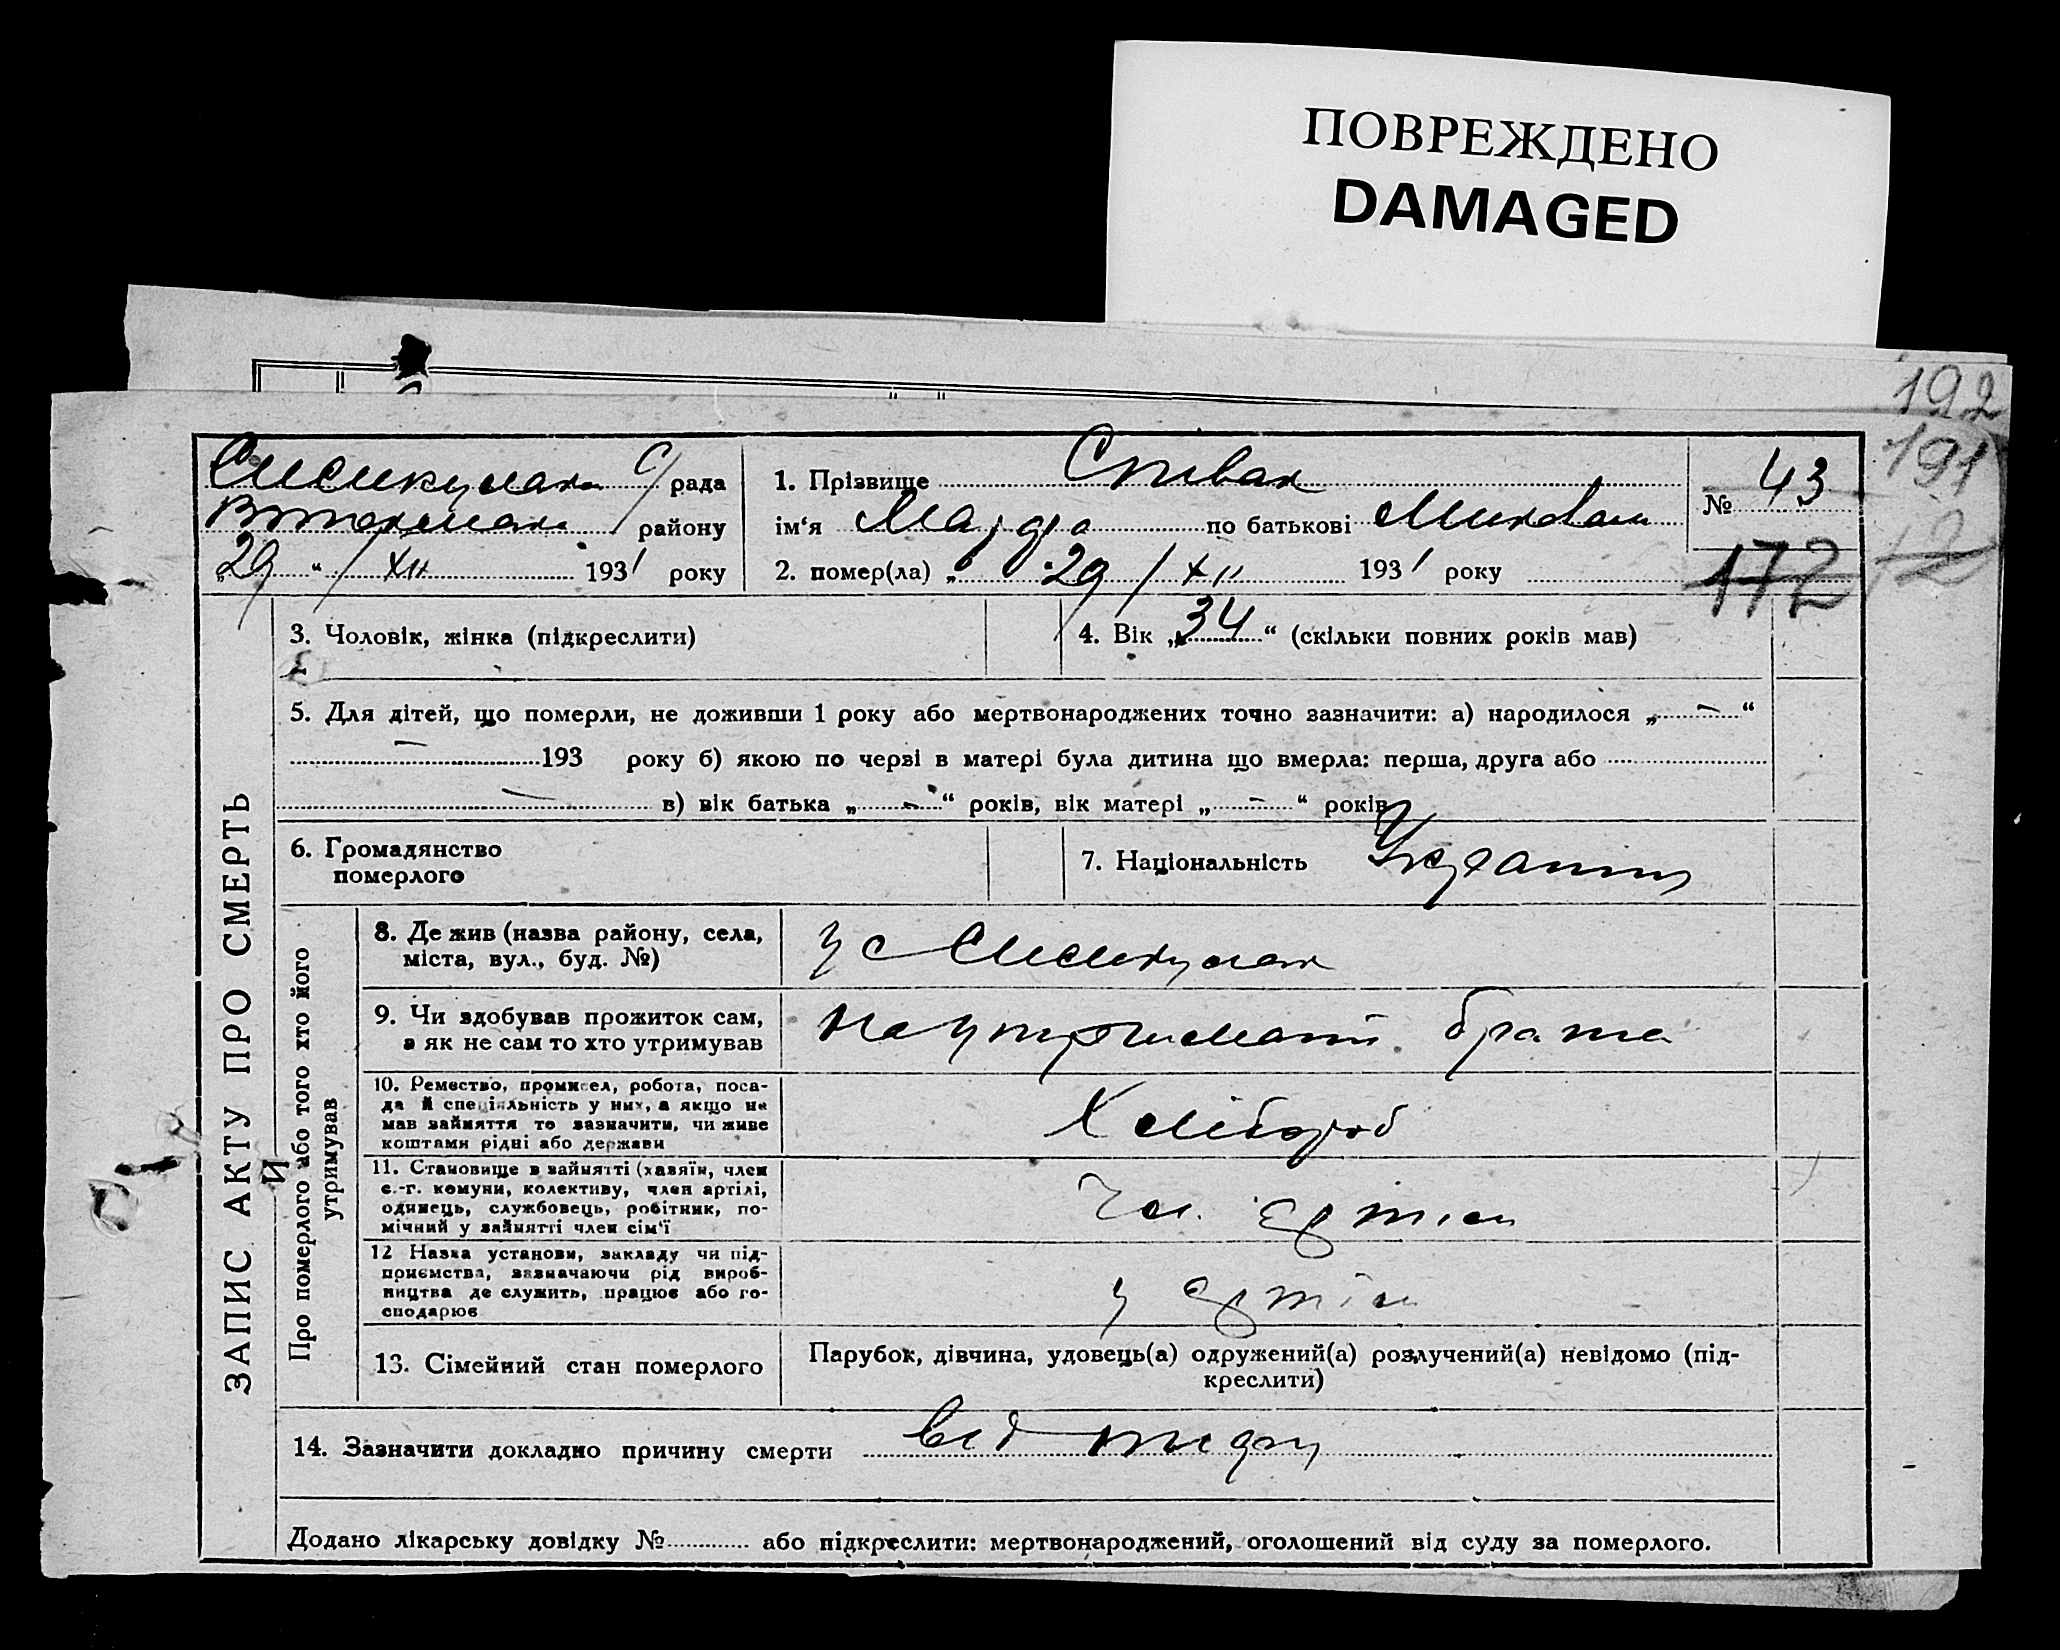 ПОВРЕЖДЕНО
DAMAGED
192
191
с/ рада
району
„29“ / XII 1931 року
1. Прізвище Співак
ім‘я Марфа по батькові
2. помер(ла) „29 / XII 1931 року
№ 43
172
3. Чоловік, жінка (підкреслити)
4. Вік „34“ (скільки повних років мав)
5. Для дітей, що померли, не доживши 1 року або мертвонароджених точно зазначити: а) народилося „—“
— 193 року б) якою по черзі в матері була дитина що вмерла: перша, друга або
— в) вік батька „—“ років, вік матері „—“ років
6. Громадянство
померлого
7. Національність
ЗАПИС АКТУ ПРО СМЕРТЬ
Й
Про померлого або того хто його
утримував
8. Де жив (назва району, села,
міста, вул., буд. №)
у с
9. Чи здобував прожиток сам,
а як не сам то хто утримував
на утриманні брата
10. Ремество, промисел, робота, поса-
да й спеціяльність у них, а якщо не
мав заняття то зазначити, чи живе
коштами рідні або держави
Хлібороб
11. Становище в занятті (хазяїн, член
с.-г. комуни, колективу, член артілі,
одинець, службовець, робітник, по-
мічний у занятті член сім‘ї
Чл. артіли
12 Назва установи, закладу чи під-
приємства, зазначаючи рід вироб-
ництва де служить, працює або го-
сподарює
у артіли
13. Сімейний стан померлого
Парубок, дівчина, удовець(а) одружений(а) розлучений(а) невідомо (під-
креслити)
14. Зазначити докладно причину смерти від
Додано лікарську довідку № або підкреслити: мертвонароджений, оголошений від суду за померлого.